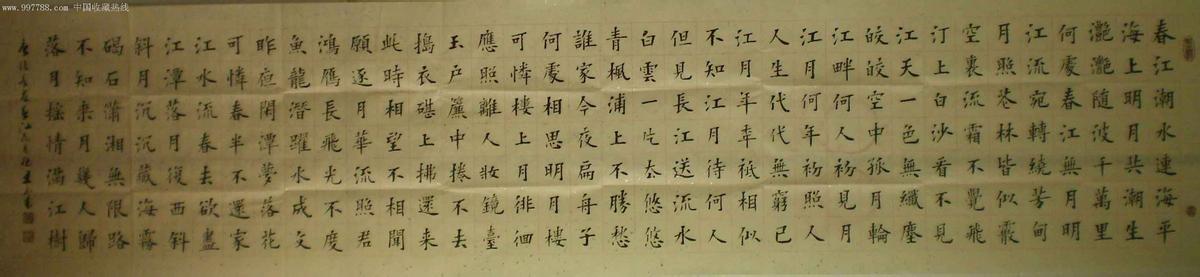 春江潮水連海平
海上明月共潮生
灔灔隨波千萬里
何處春江無月明
江流宛轉繞芳甸
月照花林皆似霰
空裏流霜不覺飛
汀上白沙看不見
江天一色無纖塵
皎皎空中孤月輪
江畔何人初見月
江月何年初照人
人生代代無窮已
江月年年祇相似
不知江月待何人
但見長江送流水
白雲一片去悠悠
青楓浦上不勝愁
誰家今夜扁舟子
何處相思明月樓
可憐樓上月徘徊
應照離人妝鏡臺
玉戶簾中捲不去
搗衣碪上拂還来
此時相望不相聞
願逐月華流照君
鴻雁長飛光不度
魚龍潛躍水成文
昨夜閑潭夢落花
可憐春半不還家
江水流春去欲盡
江潭落月復西斜
斜月沉沉藏海霧
碣石瀟湘無限路
不知乗月幾人歸
落月搖情滿江樹
www.997788.com 中国收藏热线